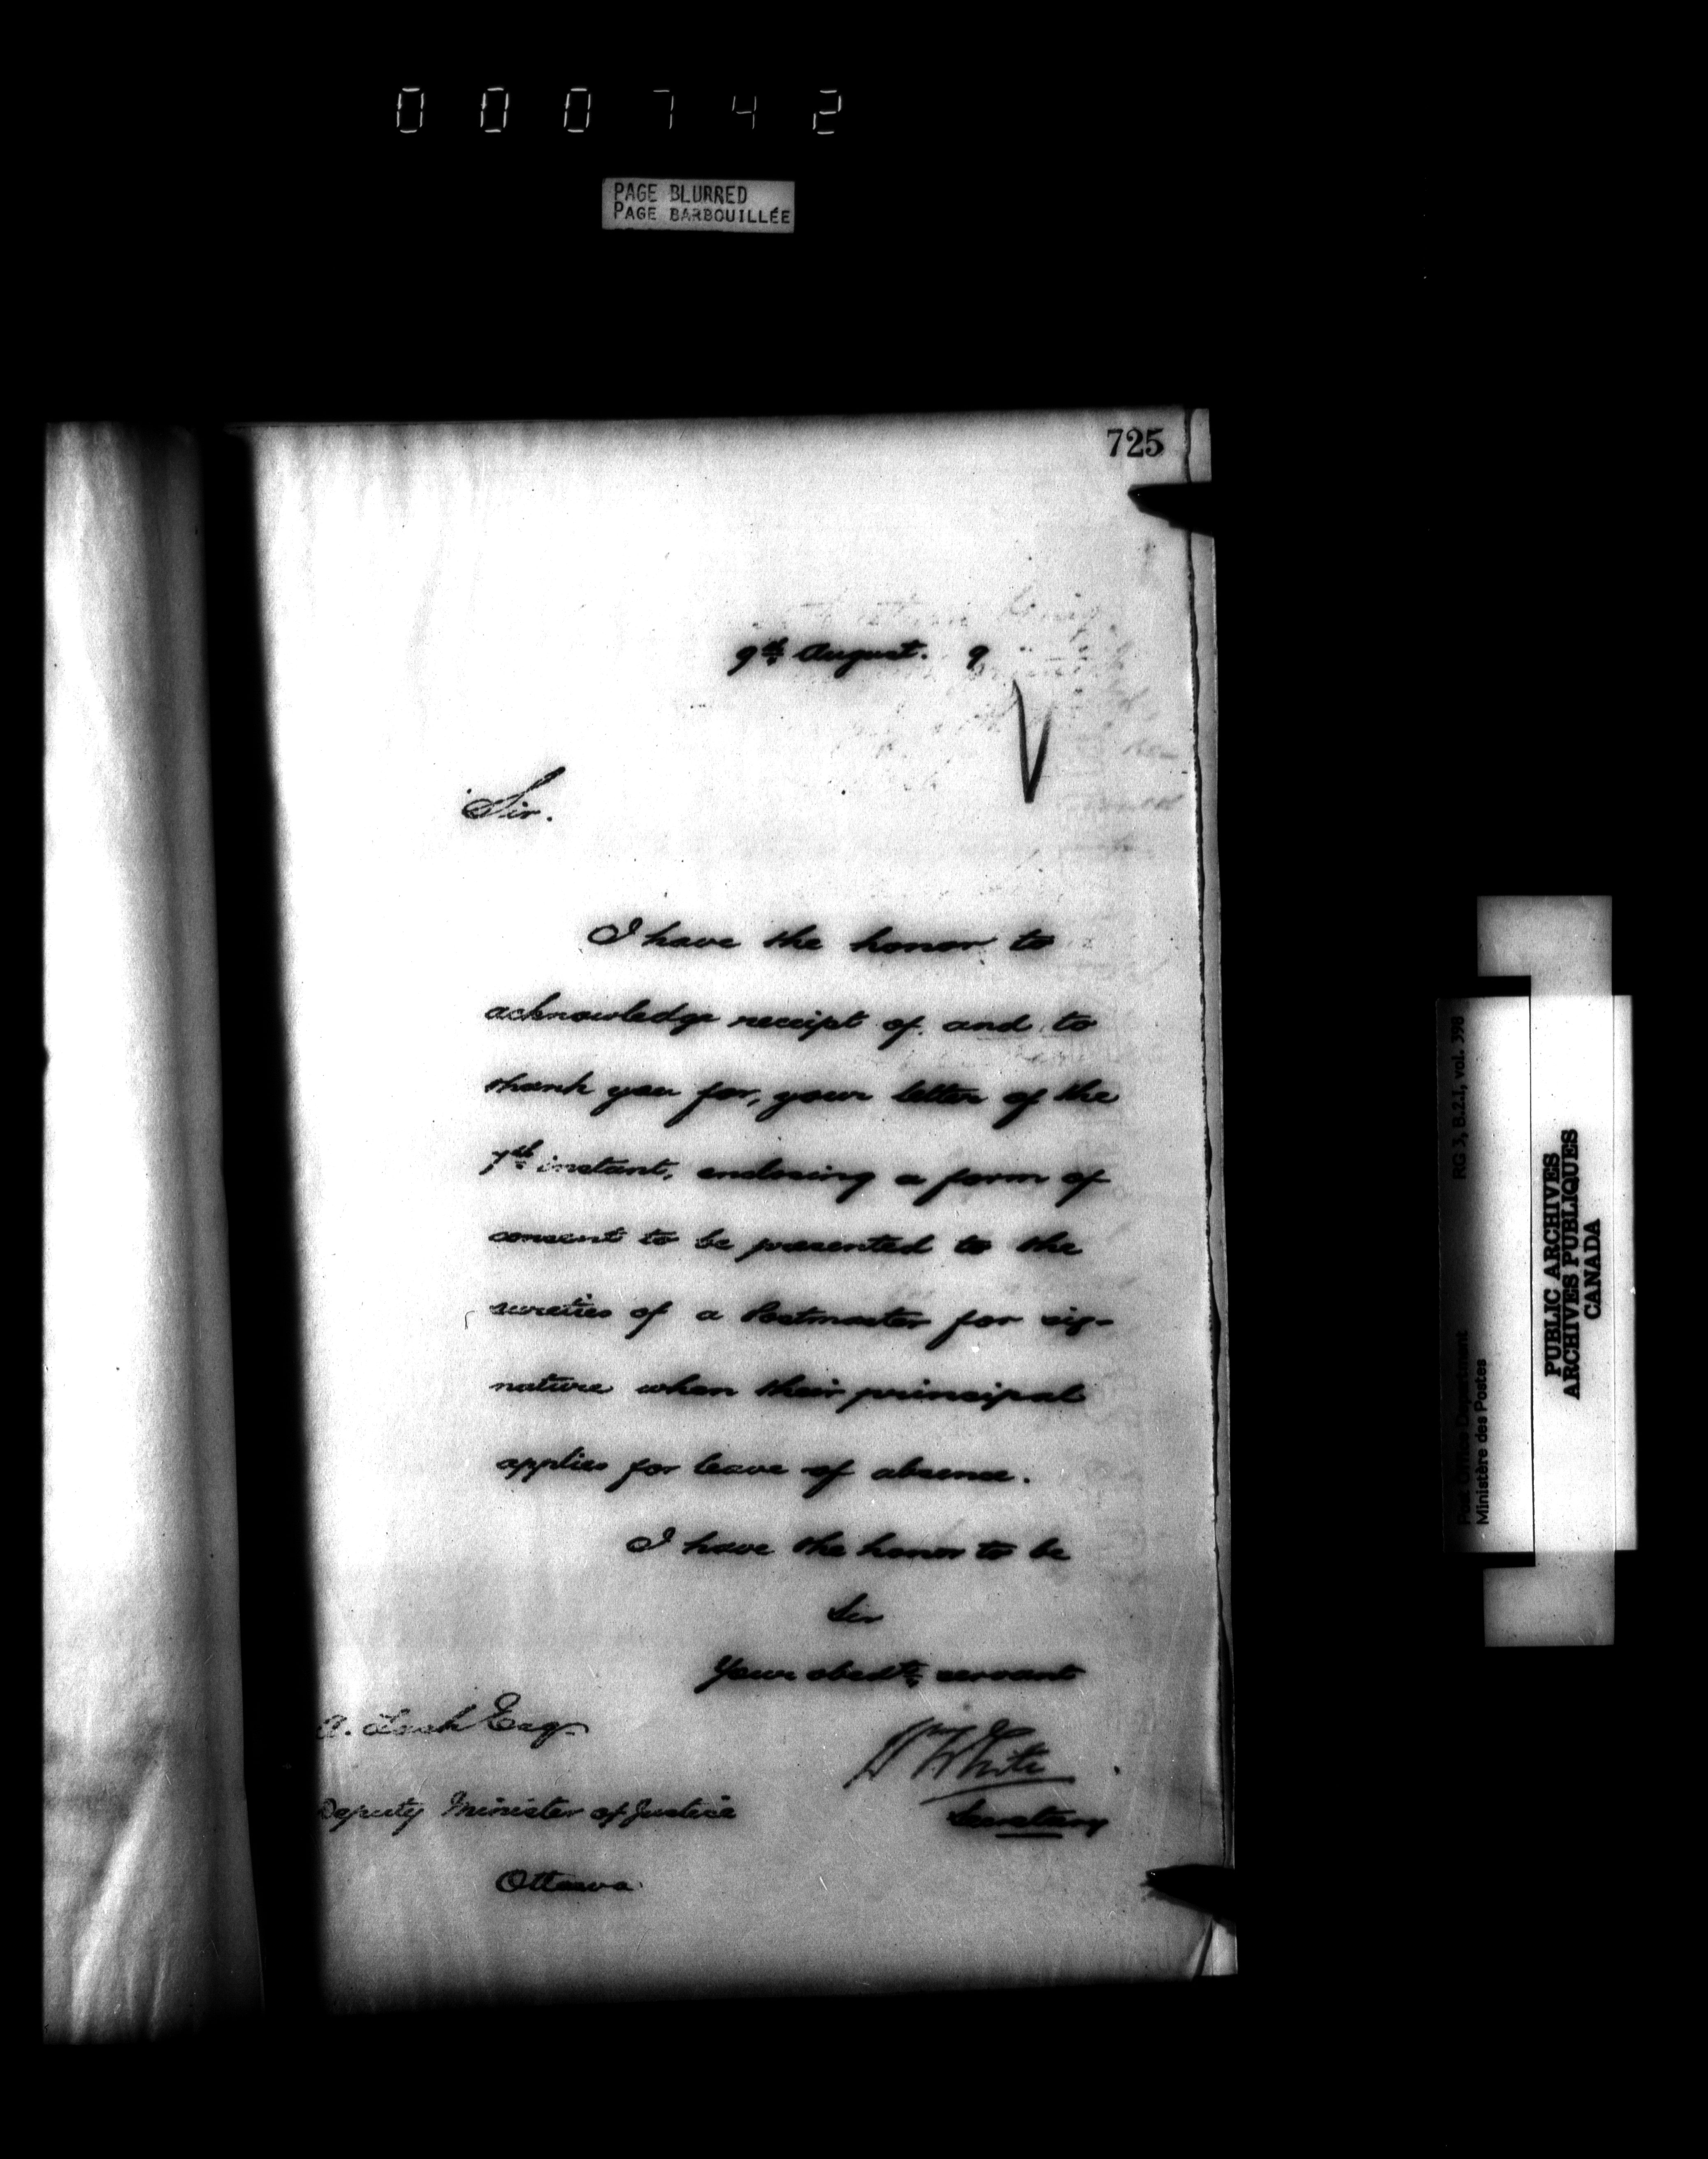 000742
PAGE BLURRED
PAGE BARBOUILLÉE
725
9th August. 9
Sir.
I have the honor to
acknowledge receipt of, and to
thank you for, your letter of the
7th instant, enclosing a form of
consent to be presented to the
sureties of a Postmaster for sig-
nature when their principal
applies for leave of absence.
I have the honor to be
Sir
Your obedt. servant
Wm White
Secretary
A. Lash Esq.
Deputy Minister of Justice
Ottawa
RG 3, B.2.1, vol. 398
Post Office Department
Ministère des Postes
PUBLIC ARCHIVES
ARCHIVES PUBLIQUES
CANADA